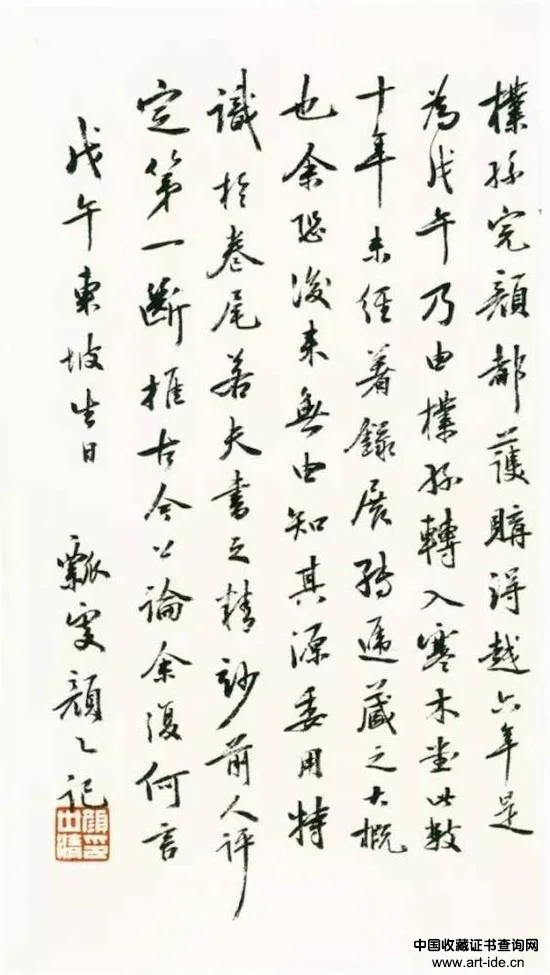 樸孫完顏都護購得越六年是
為戊午乃由樸孫轉入寒木堂此數
十年未經著錄展轉遞藏之大概
也余恐後来無由知其源委用特
識於卷尾若夫書之精妙前人評
定第一斷推古今公論余復何言
戊午東坡生日 瓢叟顏記
中国收藏证书查询网
www.art-ide.cn